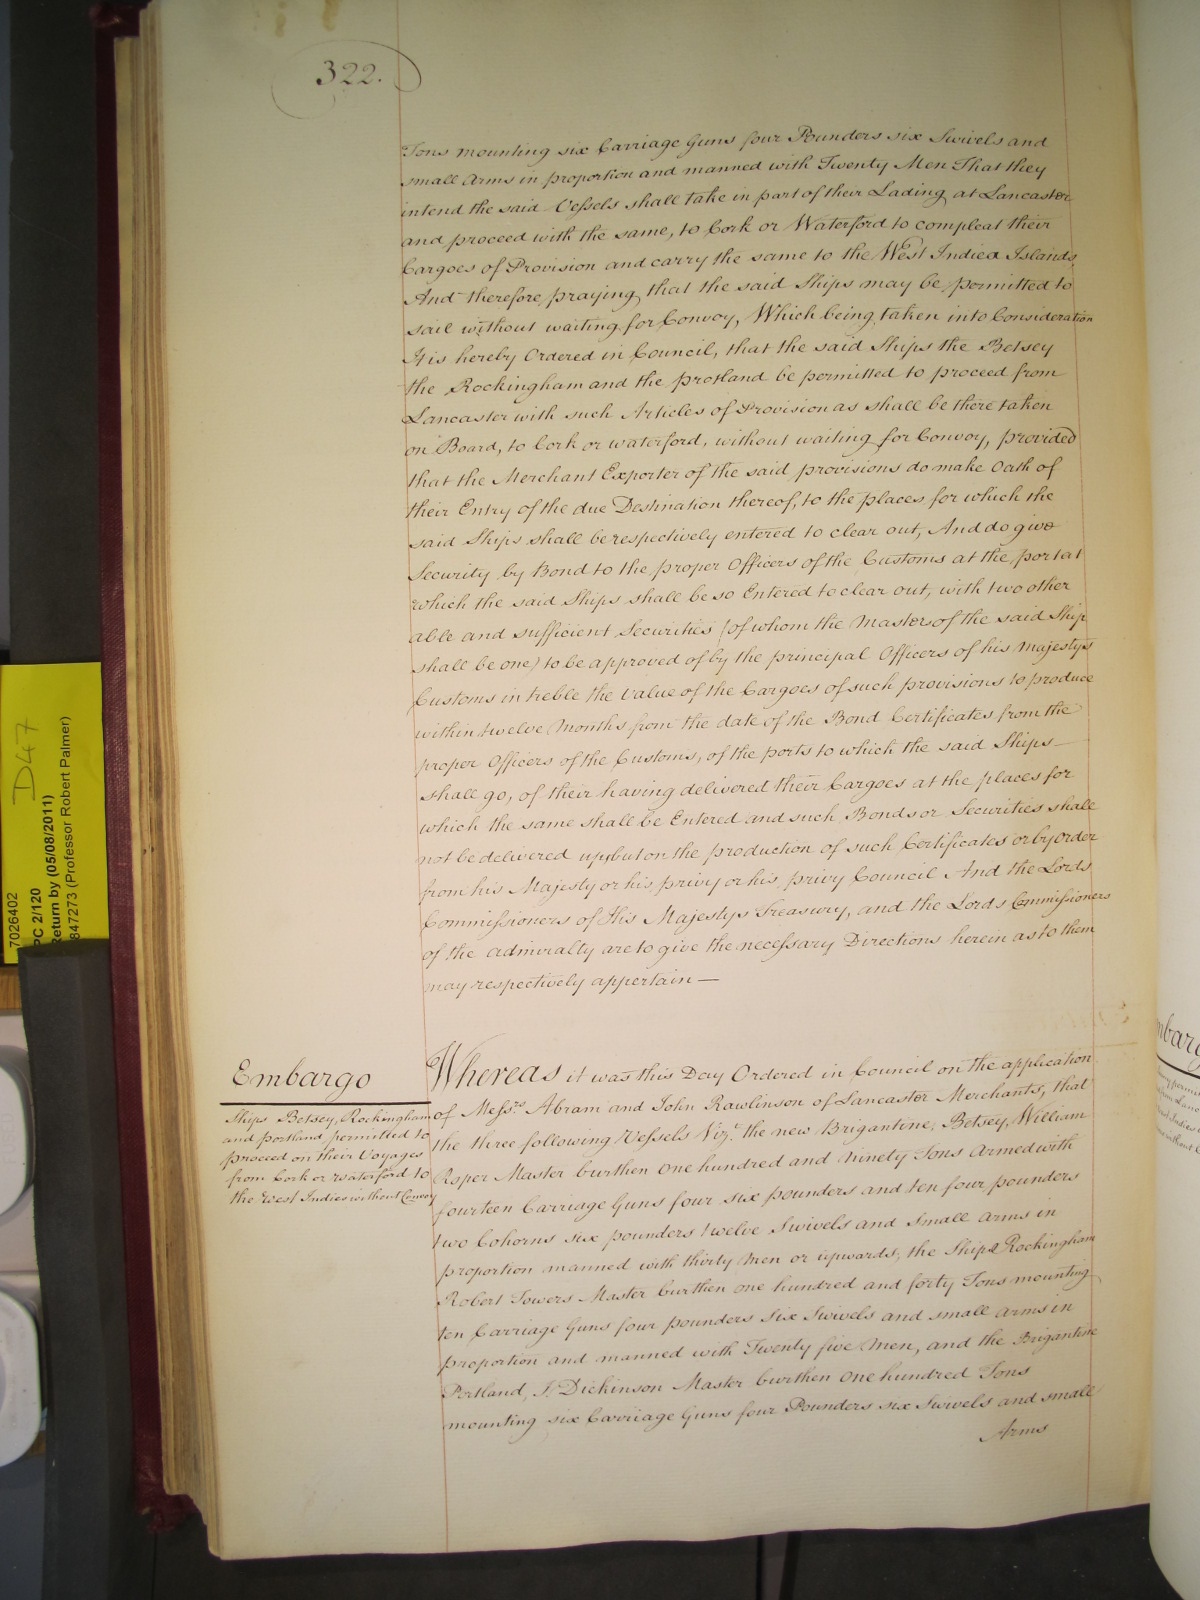 322.
Tons mounting six Carriage Guns four Pounders six Swivels and
small Arms in proportion and manned with Twenty Men That they
intend the said Vessels shall take in part of their Lading at Lancaster
and proceed with the same, to Cork or Waterford to compleat their
Cargoes of Provision and carry the same to the West Indiea Islands
And therefore praying that the said Ships may be permitted to
sail without waiting for Convoy, Which being taken into Consideration
It is hereby Ordered in Council, that the said Ships the Betsey
the Rockingham and the protland be permitted to proceed from
Lancaster with such Articles of Provision as shall be there taken
on Board, to Cork or waterford, without waiting for Convoy, provided
that the Merchant Exporter of the said provisions do make Oath of
their Entry of the due Destination thereof, to the places for which the
said Ships shall be respectively entered to clear out, And do give
Security by Bond to the proper Officers of the Customs at the port at
which the said Ships shall be so Entered to clear out, with two other
able and sufficient Securities (of whom the Master of the said Ship
shall be one) to be approved of by the principal Officers of his majestys
Customs in treble the Value of the Cargoes of such provisions to produce
within twelve Months from the date of the Bond Certificates from the
proper Officers of the Customs, of the ports to which the said Ships
shall go, of their having delivered their Cargoes at the places for
which the same shall be Entered and such Bonds or Securities shall
not be delivered up, but on the production of such Certificates or by order
from his Majesty or his privy or his privy Council And the Lords
Commissioners of His Majestys Treasury, and the Lords Commissioners
of the admiralty are to give the necessary Directions herein as to them
may respectively appertain —
Embargo
Ships Betsey, Rockingham
and portland permitted to
proceed on their Voyages
from Cork or waterford to
the West Indies without Convoy
Whereas it was this Day Ordered in Council on the application
of Messrs. Abram and John Rawlinson of Lancaster Merchants, that
the three following Vessels Vizt. the new Brigantine, Betsey, William
Roper Master burthen one hundred and ninety Tons Armed with
fourteen Carriage Guns four six pounders and ten four pounders
two Cohorns six pounders twelve Swivels and Small Arms in
proportion manned with thirty Men or upwards, the Ship Rockingham
Robert Towers Master burthen one hundred and forty Tons mounting
ten Carriage Guns four pounders Six Swivels and small Arms in
proportion and manned with Twenty five Men, and the Brigantine
Portland, J. Dickinson Master burthen one hundred Tons
mounting six Carriage Guns four Pounders six Swivels and small
Arms
D47
7026402
PC 2/120
Return by (05/08/2011)
847273 (Professor Robert Palmer)